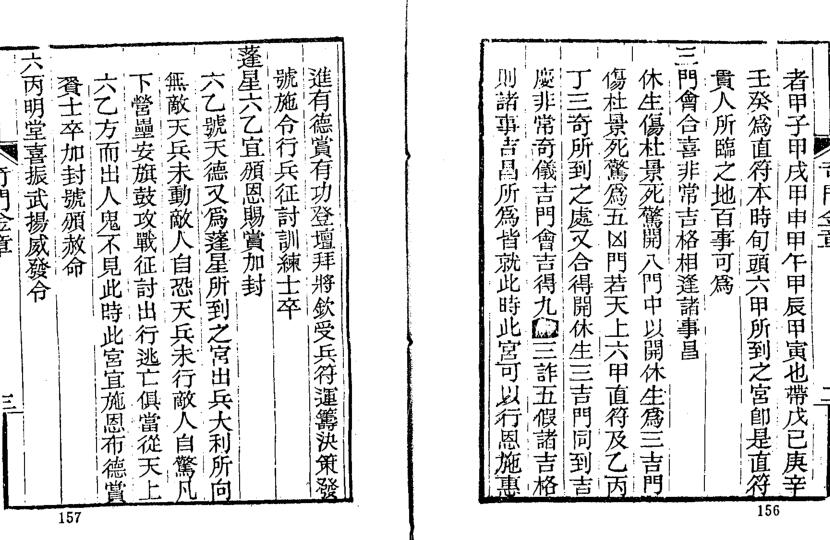 者甲子甲戌甲申甲午甲辰甲寅也帶戊己庚辛
壬癸爲直符本時旬頭六甲所到之宮卽是直符
貴人所臨之地百事可爲
三門會合喜非常吉格相逢諸事昌
休生傷杜景死驚開八門中以開休生爲三吉門
傷杜景死驚爲五凶門若天上六甲直符及乙丙
丁三奇所到之處又合得開休生三吉門同到吉
慶非常奇儀吉門會吉得九三詐五假諸吉格
則諸事吉昌所爲皆就此時此宮可以行恩施惠
奇門金章
二
156
進有德賞有功登壇拜將欽受兵符運籌決策發
號施令行兵征討訓練士卒
蓬星六乙宜頒恩賜賞加封
六乙號天德又爲蓬星所到之宮出兵大利所向
無敵天兵未動敵人自恐天兵未行敵人自驚凡
下營壘安旗鼓攻戰征討出行逃亡俱當從天上
六乙方而出人鬼不見此時此宮宜施恩布德賞
賚士卒加封號頒赦命
六丙明堂喜振武揚威發令
奇門金章
三
157